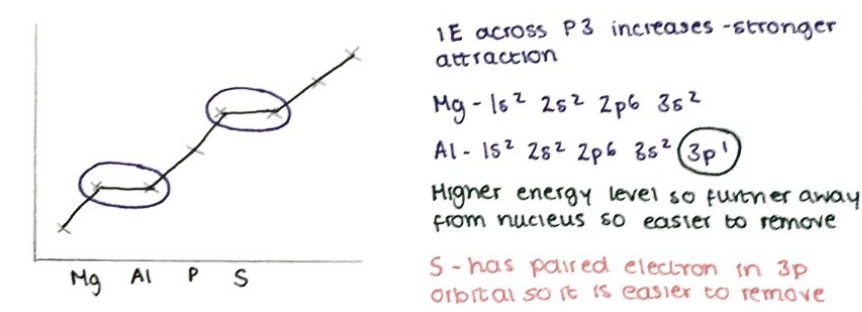 IE across P3 increases - stronger
attraction
Mg - 1s² 2s² 2p6 3s²
Al - 1s² 2s² 2p6 3s² 3p¹
Higher energy level so further away
from nucleus so easier to remove
S - has paired electron in 3p
orbital so it is easier to remove
Mg Al P S